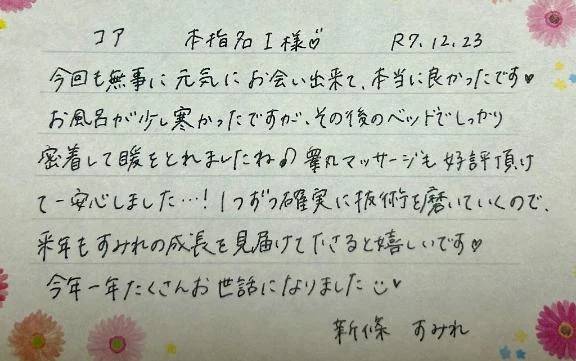 コア 本指名I様♡ R7.12.23
今回も無事に元気にお会い出来て、本当に良かったです♥
お風呂が少し寒かったですが、その後のベッドでしっかり
密着して暖をとれましたね♪ 睾丸マッサージも好評頂け
て一安心しました…! 1つずつ確実に技術を磨いていくので、
来年もすみれの成長を見届けて下さると嬉しいです♥
今年一年たくさんお世話になりました♥
新條 すみれ